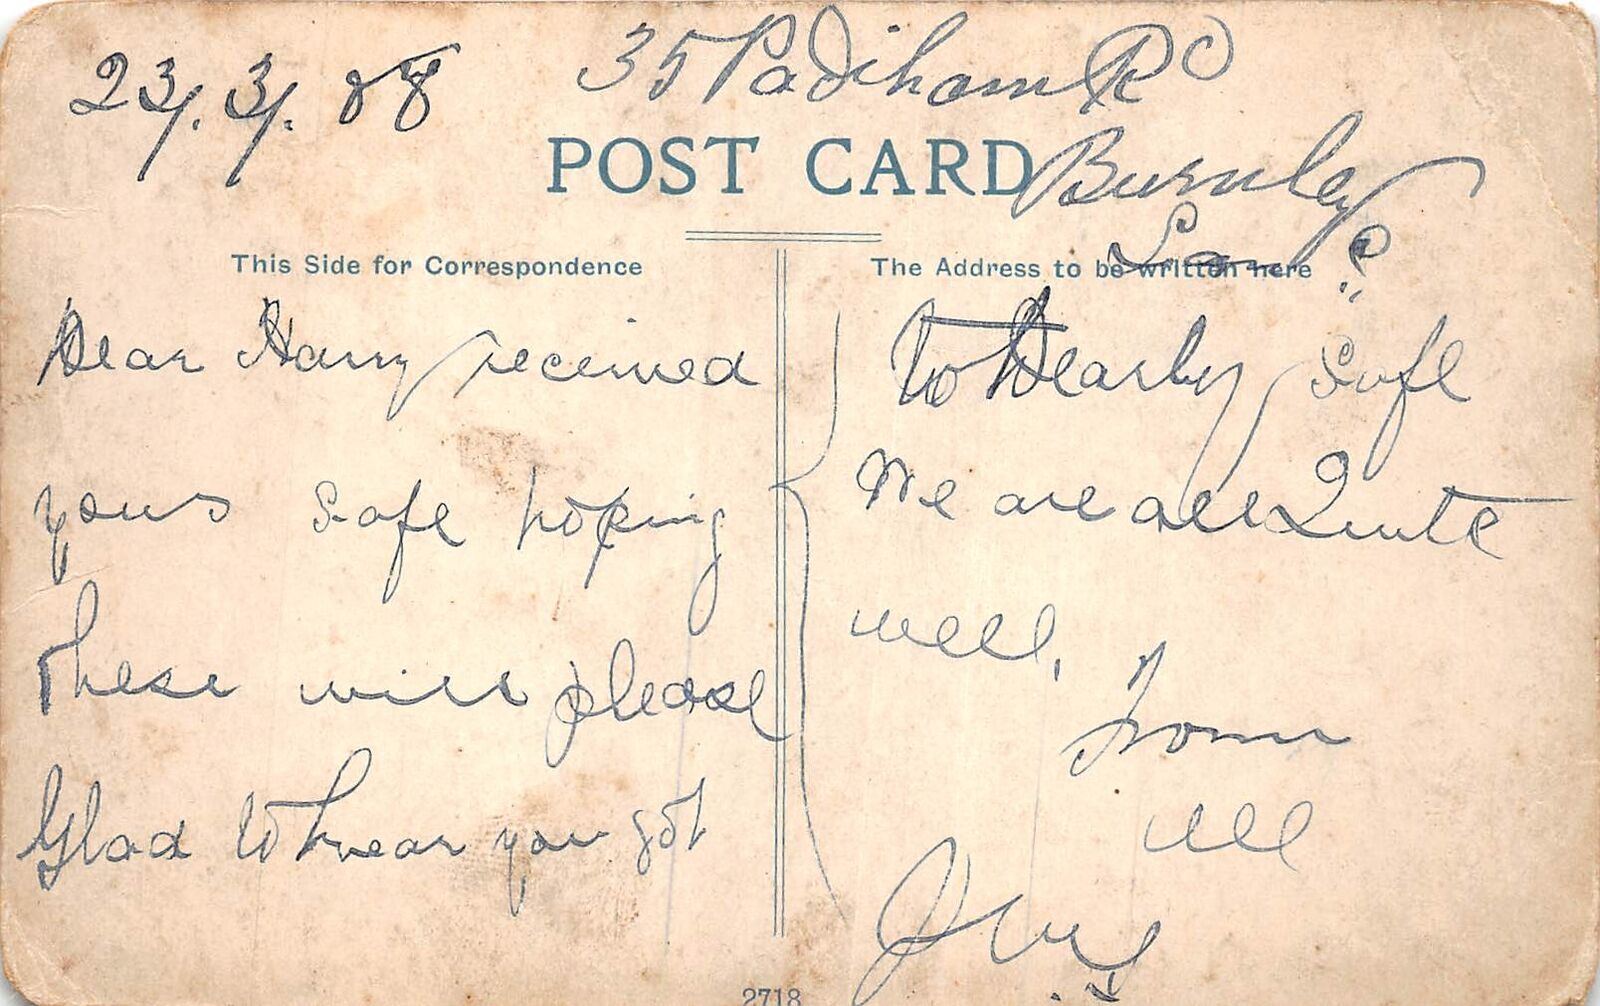 23/. 3/. 08
35 Padiham Rd
POST CARD
Burnley
This Side for Correspondence
The Address to be written here
Dear Harry received
yours safe hoping
these will please
Glad to hear you got
to Dearby safe
We are all Quite
well.
From
all
2718